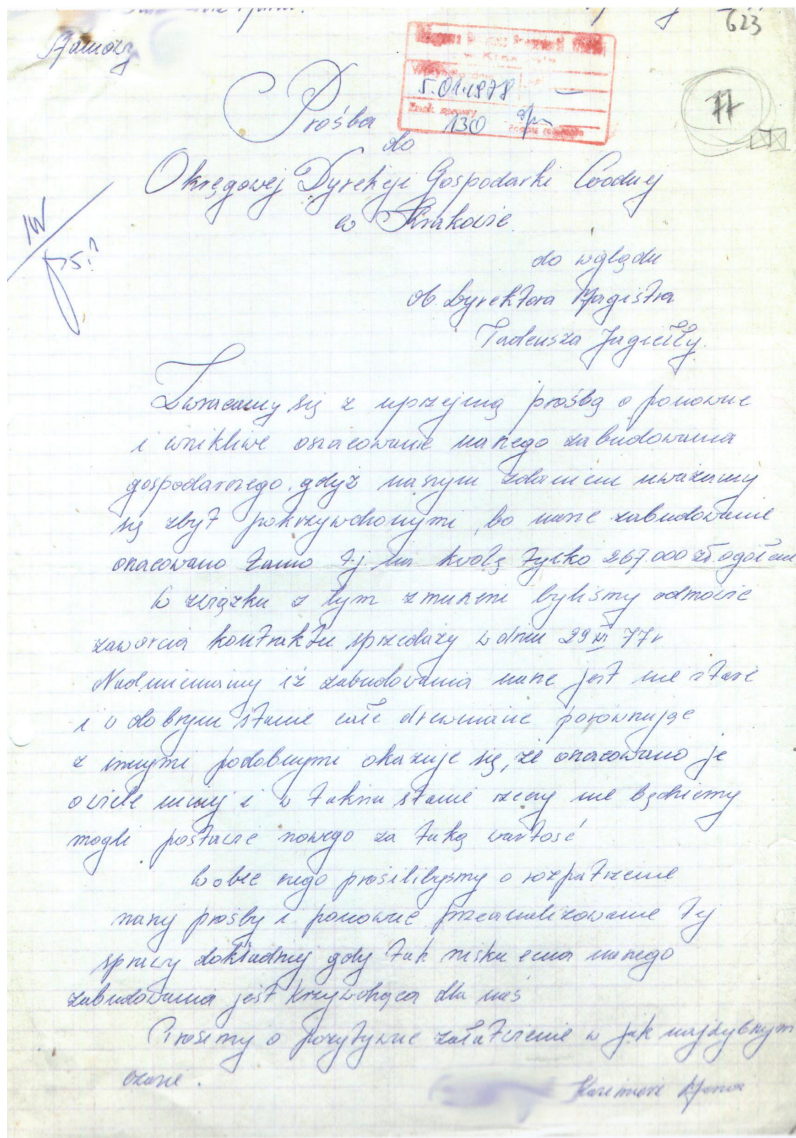 623
77
5.01.1978
130
Prośba
do
Okręgowej Dyrekcji Gospodarki Wodnej
w Krakowie.
do wglądu
ob. Dyrektora Magistra
Tadeusza Jagiełły.
Zwracamy się z uprzejmą prośbą o ponowne
i wnikliwe oszacowanie naszego zabudowania
gospodarczego, gdyż naszym zdaniem uważamy
się zbyt pokrzywdzonymi, bo nasze zabudowanie
oszacowano tj. na kwotę tylko 267.000 zł. ogółem
W związku z tym zmuszeni byliśmy odmówić
zawarcia kontraktu sprzedaży w dniu 29 77 r
Nadmieniamy iż zabudowania nasze jest nie stare
i w dobrym stanie całe drewniane porównując
z innymi podobnymi okazuje się, że oszacowano je
o wiele mniej i w takim stanie rzeczy nie będziemy
mogli postawić nowego za taką wartość
Wobec czego prosilibyśmy o rozpatrzenie
naszej prośby i ponowne przeanalizowanie tej
sprawy dokładniej gdy tak niska cena naszego
zabudowania jest krzywdząca dla nas
Prosimy o pozytywne załatwienie w jak najszybszym
czasie.
Kazimierz